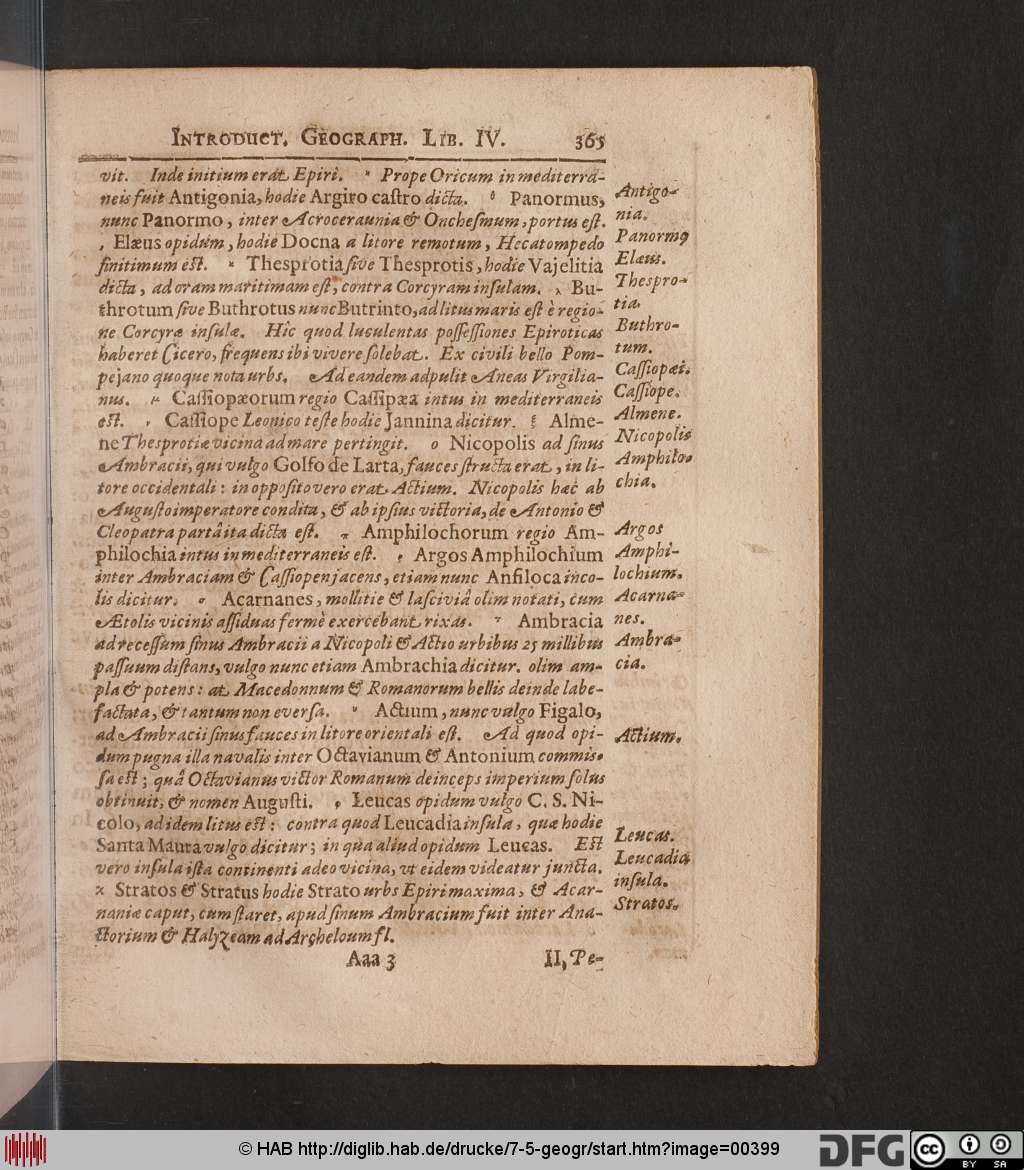 INTRODUCT. GEOGRAPH. LIB. IV. 365
vit. Inde initium erat Epiri. ⁿ Prope Oricum in mediterra-
neis fuit Antigonia, hodie Argiro castro dicta. θ Panormus,
nunc Panormo, inter Acroceraunia & Onchesmum, portus est.
ι Elæus opidum, hodie Docna a litore remotum, Hecatompedo
finitimum est. ϰ Thesprotia sive Thesprotis, hodie Vajelitia
dicta, ad oram maritimam est, contra Corcyram insulam. λ Bu-
throtum sive Buthrotus nunc Butrinto, ad litus maris est è regio-
ne Corcyræ insulæ. Hic quod luculentas possessiones Epiroticas
haberet Cicero, frequens ibi vivere solebat. Ex civili bello Pom-
pejano quoque nota urbs. Ad eandem adpulit Æneas Virgilia-
nus. μ Cassiopæorum regio Cassipæa intus in mediterraneis
est. ν Cassiope Leonico teste hodie Jannina dicitur. ξ Alme-
ne Thesprotiæ vicina ad mare pertingit. ο Nicopolis ad sinus
Ambracii, qui vulgo Golfo de Larta, fauces structa erat, in li-
tore occidentali: in opposito vero erat Actium. Nicopolis hæc ab
Augusto imperatore condita, & ab ipsius victoria, de Antonio &
Cleopatra partâ ita dicta est. π Amphilochorum regio Am-
philochia intus in mediterraneis est. ρ Argos Amphilochium
inter Ambraciam & Cassiopen jacens, etiam nunc Anfiloca inco-
lis dicitur. σ Acarnanes, mollitie & lasciviâ olim notati, cum
Ætolis vicinis assiduas fermè exercebant rixas. τ Ambracia
ad recessum sinus Ambracii a Nicopoli & Actio urbibus 25 millibus
passuum distans, vulgo nunc etiam Ambrachia dicitur. olim am-
pla & potens: at Macedonnum & Romanorum bellis deinde labe-
factata, & tantum non eversa. υ Actium, nunc vulgo Figalo,
ad Ambracii sinus fauces in litore orientali est. Ad quod opi-
dum pugna illa navalis inter Octavianum & Antonium commis-
sa est; quâ Octavianus victor Romanum deinceps imperium solus
obtinuit, & nomen Augusti. φ Leucas opidum vulgo C. S. Ni-
colo, ad idem litus est: contra quod Leucadia insula, quæ hodie
Santa Maura vulgo dicitur; in qua aliud opidum Leucas. Est
vero insula ista continenti adeo vicina, vt eidem videatur juncta.
χ Stratos & Stratus hodie Strato urbs Epiri maxima, & Acar-
naniæ caput, cum staret, apud sinum Ambracium fuit inter Ana-
ctorium & Halyzeam ad Archeloum fl.
Aaa 3 II, Pe-
Antigo-
nia.
Panormo
Elæus.
Thespro-
tia.
Buthro-
tum.
Cassiopæi.
Cassiope.
Almene.
Nicopolis
Amphilo-
chia.
Argos
Amphi-
lochium.
Acarna-
nes.
Ambra-
cia.
Actium.
Leucas.
Leucadia
insula.
Stratos.
© HAB http://diglib.hab.de/drucke/7-5-geogr/start.htm?image=00399
DFG cc BY SA